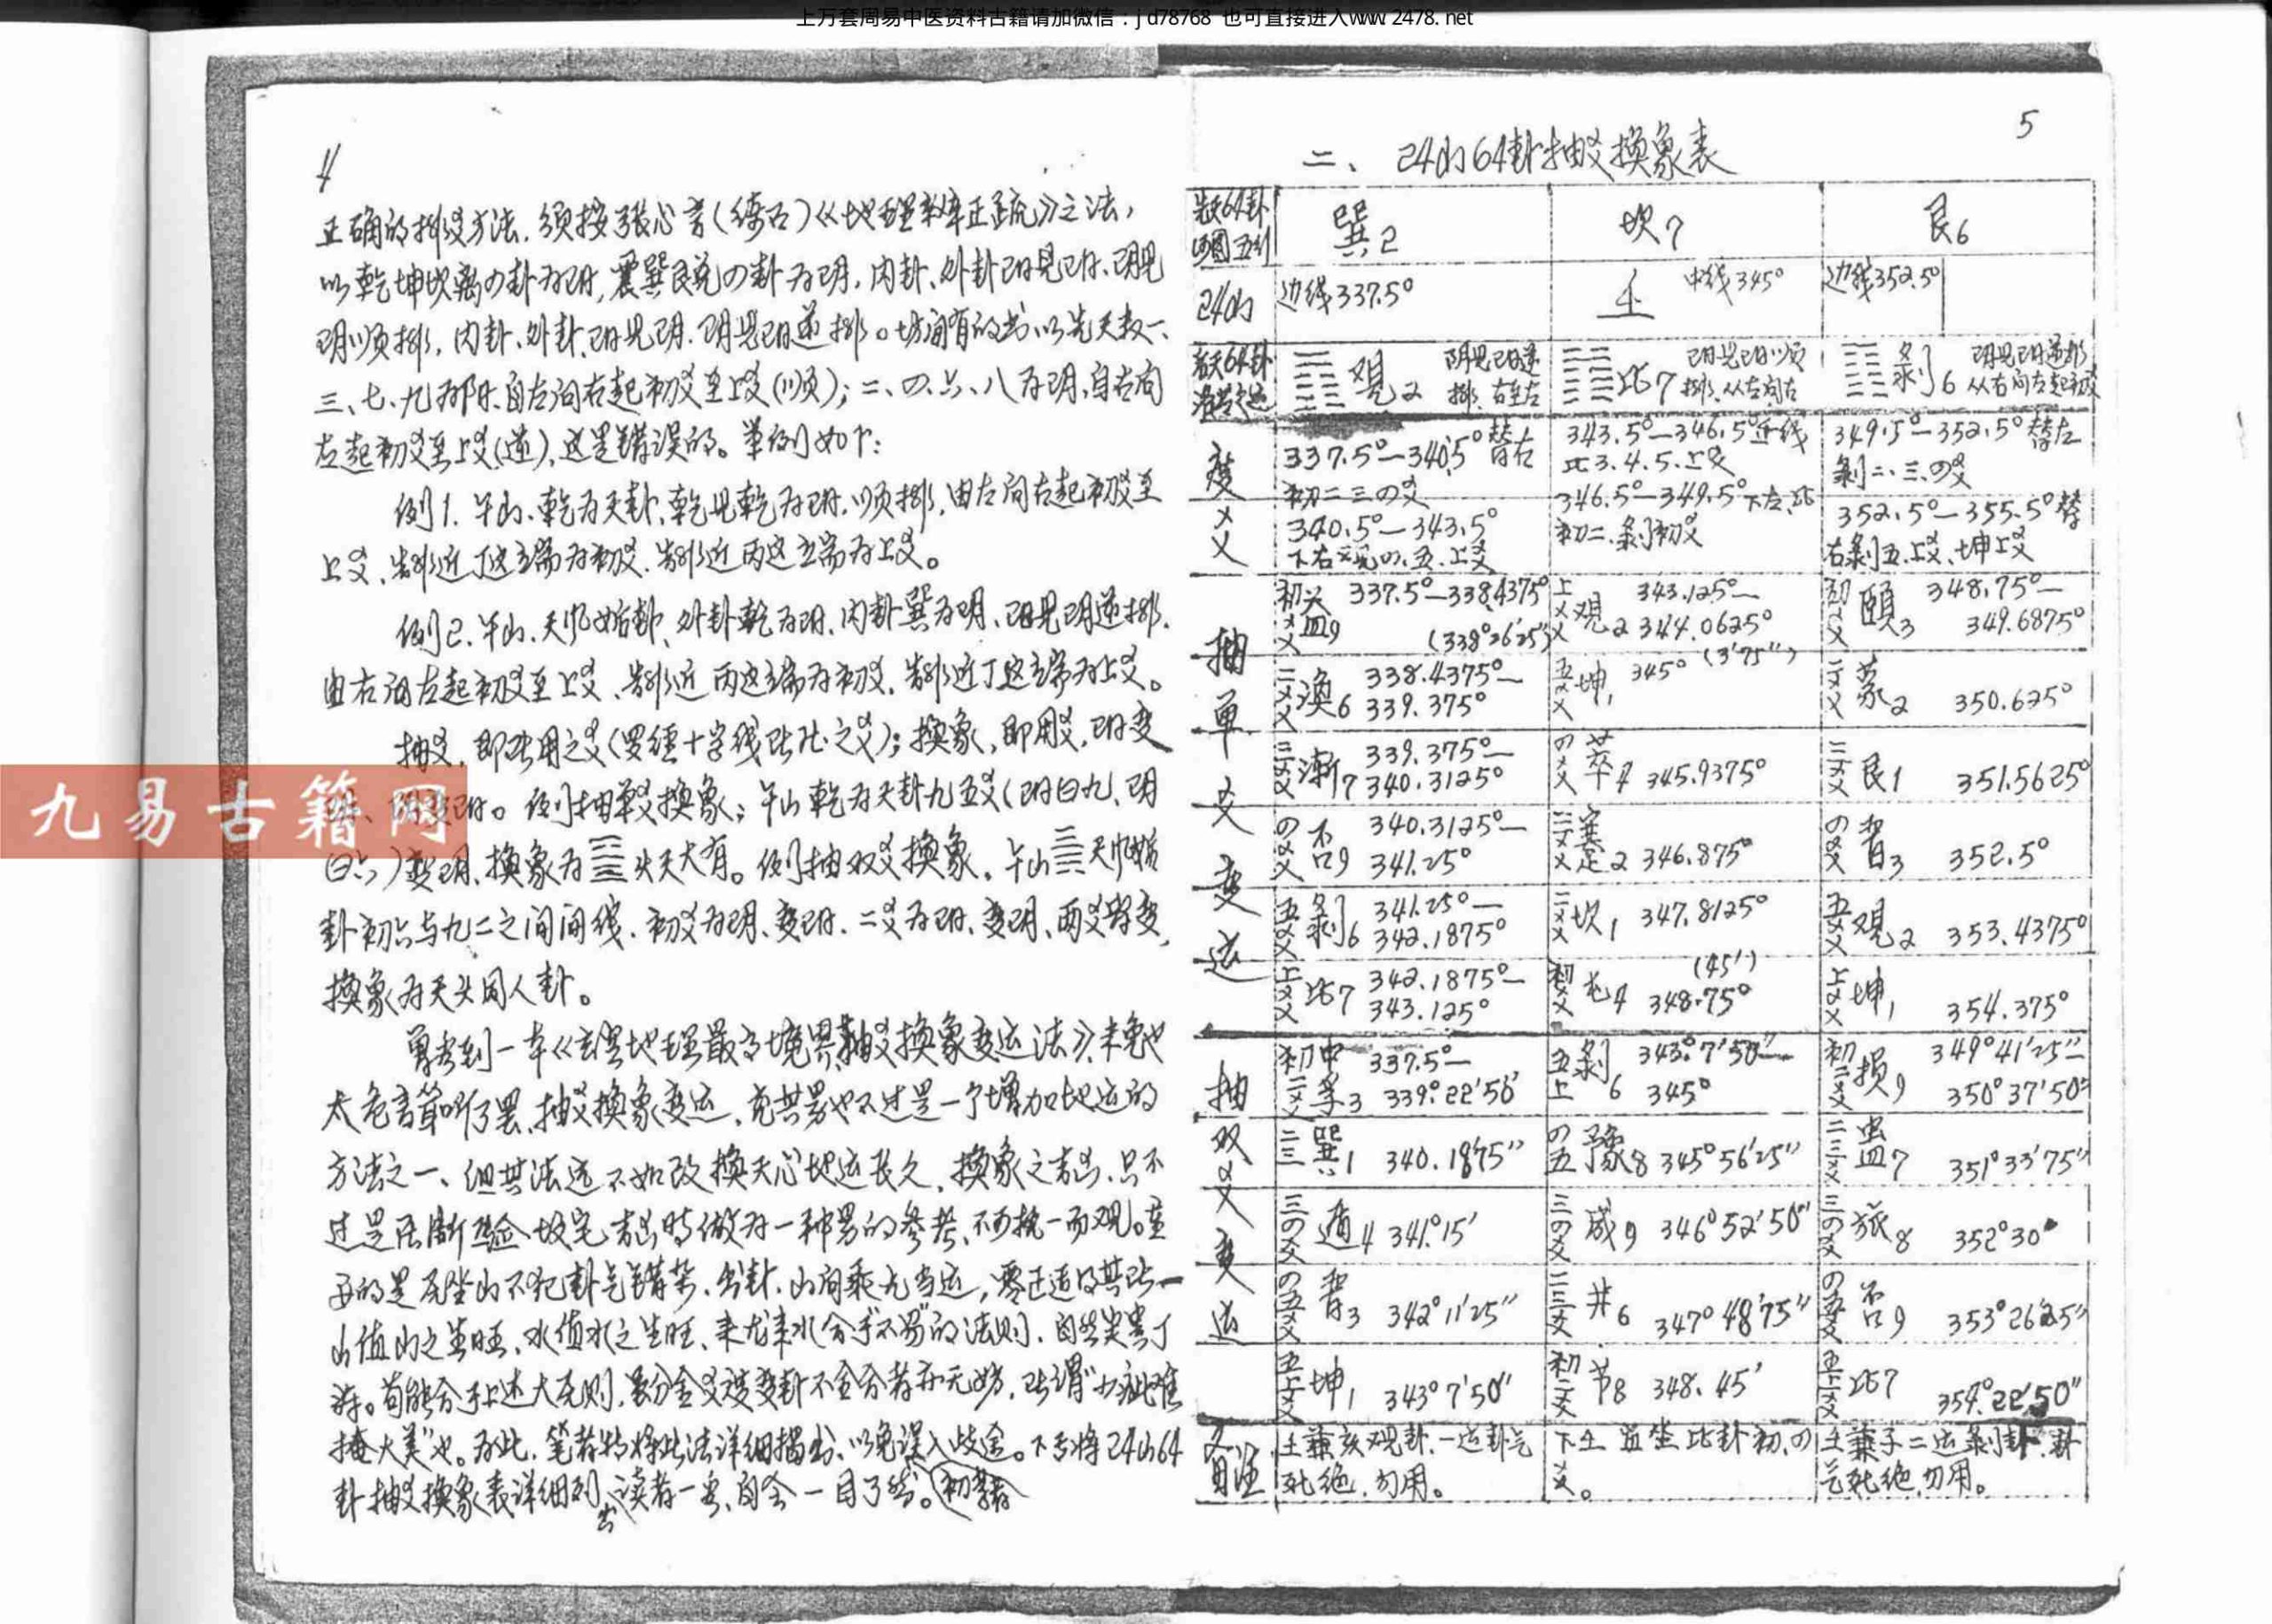 上万套周易中医资料古籍请加微信：jd78768 也可直接进入www.2478.net
4
正确的排爻方法，须按张心言（绮石）《地理辨正疏》之法，
以乾坤坎离四卦为阳，震巽艮兑四卦为阴，内卦、外卦阳见阳、阴见
阴顺排，内卦、外卦阳见阴、阴见阳逆排。坊间有的书以先天数一、
三、七、九为阳，自左向右起初爻至上爻（顺）；二、四、六、八为阴，自右向
左起初爻至上爻（逆），这是错误的。举例如下：
例1. 午山、乾为天卦，乾见乾为阳，顺排，由左向右起初爻至
上爻，靠近丁这立端为初爻，靠近丙这立端为上爻。
例2. 午山、天风姤卦，外卦乾为阳，内卦巽为阴，阳见阴逆排，
由右向左起初爻至上爻，靠近丙这立端为初爻，靠近丁这立端为上爻。
抽爻，即所用之爻（罗经十字线所压之爻）；换象，即用爻，阳变
阴变阳。例抽单爻换象；午山乾为天卦九五爻（阳曰九、阴
曰六）变阴，换象为火天大有。例抽双爻换象，午山天风姤
卦初六与九二之间间线，初爻为阴、变阳，二爻为阳、变阴，两爻皆变，
换象为天火同人卦。
曾看到一本《玄空地理最高境界抽爻换象变运法》，未免也
太危言耸听了罢，抽爻换象变运，充其量也不过是一个增加地运的
方法之一、但其法远不如改换天心地运长久，换象之吉凶，只不
过是在断验坟宅吉凶时做为一种另的参考，不可执一而观。重
要的是在坐山不犯卦气错杂，出卦，山向乘九当运，零正适得其所——
山值山之生旺，水值水之生旺，来龙来水合乎“不易”的法则，自然尖善丁
添。苟能合乎上述大原则，累分金爻度变卦不全合者亦无妨，所谓“小疵难
掩大美”也。为此，笔者特将此法详细揭出，以免误入歧途。下专将24山64
卦抽爻换象表详细列出，读者一安，自会一目了然。初学者
九易古籍网
5
二、24山64卦抽爻换象表
先天64卦方圆五行 巽2 坎7 艮6
24山 边线337.5° 壬 中线345° 边线352.5°
观2 阴见阳逆排，右至左 比7 阳见阳顺排，从左向右 剥6 阴见阳逆排从右向左起初爻
度 337.5°—340.5°替右初二三四爻 343.5°—346.5°正线比3.4.5.上爻 349.5°—352.5°替左剥二、三、四爻
爻 340.5°—343.5°下右观四、五、上爻 346.5°—349.5°下左、比初二、剥初爻 352.5°—355.5°替右剥五、上爻、坤上爻
抽单爻变运
初爻 益9 337.5°—338.4375°（338°26′25″） 上爻 观2 343.125°—344.0625° 初爻 颐3 348.75°—349.6875°
二爻 涣6 338.4375°—339.375° 五爻 坤1 345°（3′75″） 二爻 蒙2 350.625°
三爻 渐7 339.375°—340.3125° 四爻 萃4 345.9375° 三爻 艮1 351.5625°
四爻 否9 340.3125°—341.25° 三爻 蹇2 346.875° 四爻 晋3 352.5°
五爻 剥6 341.25°—342.1875° 二爻 坎1 347.8125° 五爻 观2 353.4375°
上爻 比7 342.1875°—343.125° 初爻 屯4 348.75°（45′） 上爻 坤1 354.375°
抽双爻变运
初二爻 中孚3 337.5°—339°22′50″ 五上 剥6 343°7′50″—345° 初二爻 损9 349°41′25″—350°37′50″
二三 巽1 340.1875″ 四五 豫8 345°56′25″ 二三爻 蛊7 351°33′75″
三四爻 遁4 341°15′ 三四爻 咸9 346°52′50″ 三四爻 旅8 352°30′
四五爻 晋3 342°11′25″ 二三爻 井6 347°48′75″ 四五爻 否9 353°26′25″
五上爻 坤1 343°7′50″ 初二爻 节8 348.45′ 五上爻 比7 354°22′50″
备注 壬兼亥观卦，一运卦气死绝，勿用。 下壬 宜坐比卦初、四爻。 壬兼子二运剥卦，卦气死绝，勿用。